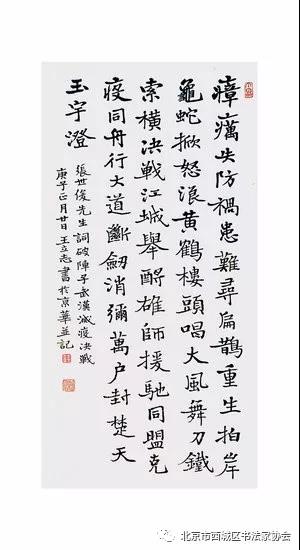 瘴癘失防禍患難尋扁鵲重生拍岸
龜蛇掀怒浪黃鶴樓頭唱大風舞刀鐵
索橫決戰江城舉酹雄師援馳同盟克
疫同舟行大道斷劒消彌萬户封楚天
玉宇澄
張世俊先生詞破陣子武漢滅疫決戰
庚子正月廿日王立志書於京華並記
北京市西城区书法家协会